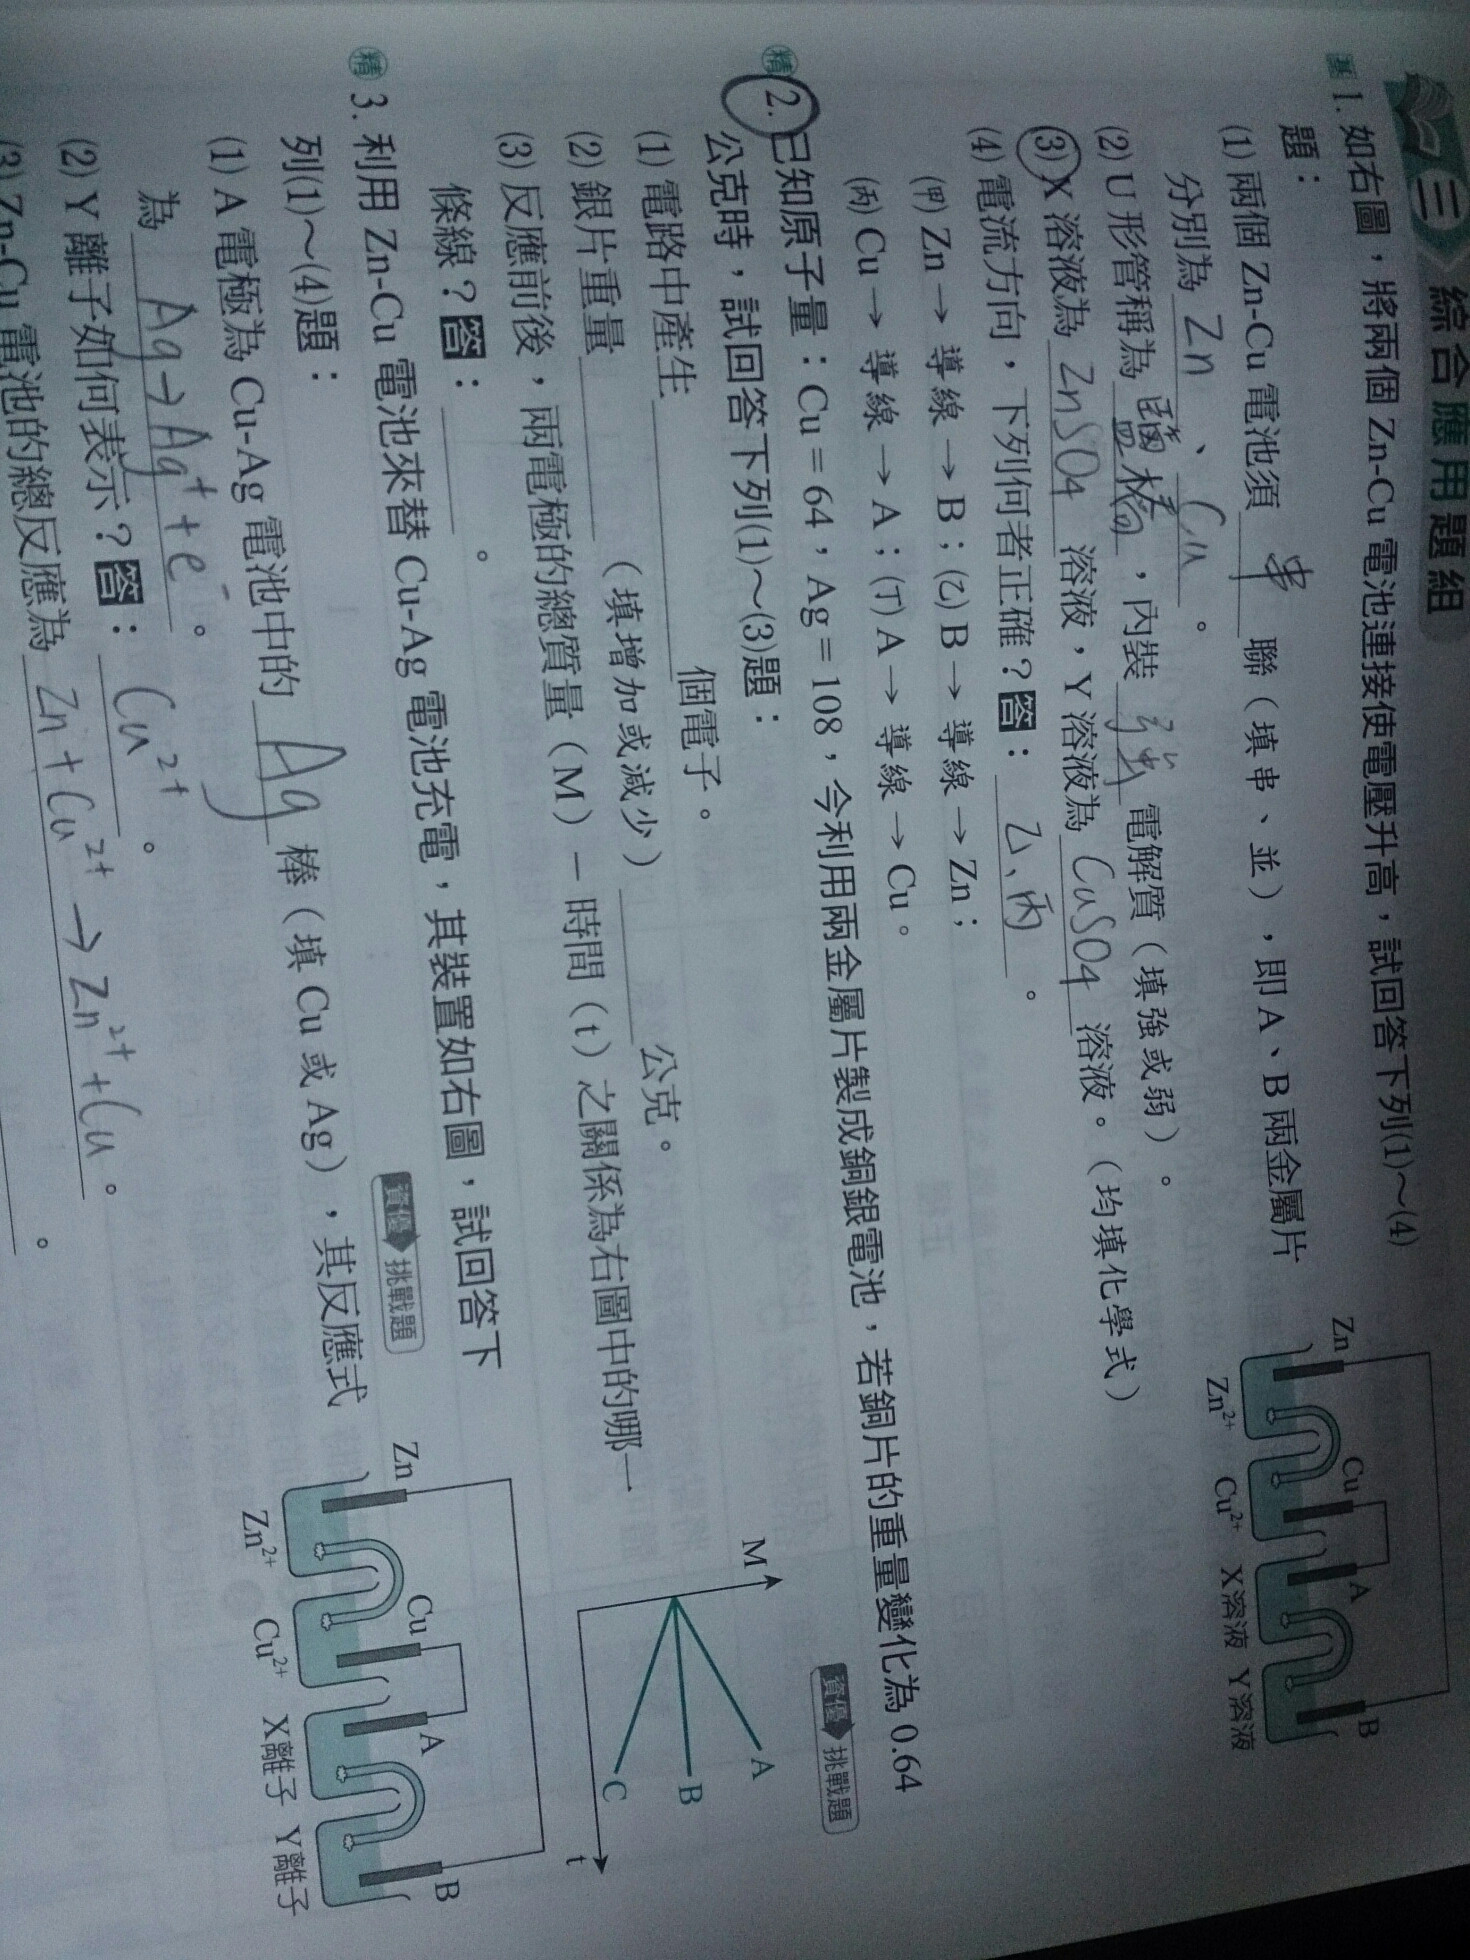 三 綜合應用題組
基 1. 如右圖，將兩個 Zn-Cu 電池連接使電壓升高，試回答下列(1)～(4)
題：
(1) 兩個 Zn-Cu 電池須 串 聯（填串、並），即 A、B 兩金屬片
分別為 Zn 、 Cu 。
(2) U 形管稱為 鹽橋 ，內裝 強 電解質（填強或弱）。
(3) X 溶液為 ZnSO4 溶液，Y 溶液為 CuSO4 溶液。（均填化學式）
(4) 電流方向，下列何者正確？答： 乙、丙 。
(甲) Zn → 導線 → B；(乙) B → 導線 → Zn；
(丙) Cu → 導線 → A；(丁) A → 導線 → Cu。
Zn Cu A B
Zn²⁺ Cu²⁺ X溶液 Y溶液
精 2. 已知原子量：Cu = 64，Ag = 108，今利用兩金屬片製成銅銀電池，若銅片的重量變化為 0.64
公克時，試回答下列(1)～(3)題：
資優 挑戰題
(1) 電路中產生 個電子。
(2) 銀片重量 （填增加或減少） 公克。
(3) 反應前後，兩電極的總質量（M）－時間（t）之關係為右圖中的哪一
條線？答： 。
M
A
B
C
t
精 3. 利用 Zn-Cu 電池來替 Cu-Ag 電池充電，其裝置如右圖，試回答下
列(1)～(4)題：
資優 挑戰題
(1) A 電極為 Cu-Ag 電池中的 Ag 棒（填 Cu 或 Ag），其反應式
為 Ag → Ag⁺ + e⁻ 。
(2) Y 離子如何表示？答： Cu²⁺ 。
(3) Zn-Cu 電池的總反應為 Zn + Cu²⁺ → Zn²⁺ + Cu 。
。
Zn Cu A B
Zn²⁺ Cu²⁺ X離子 Y離子